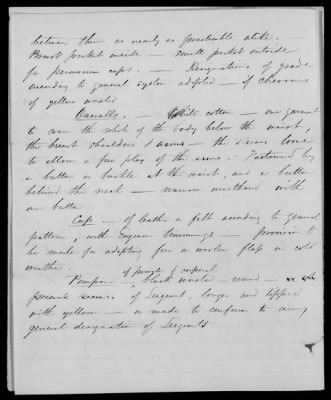 between them as nearly as practicable alike.
Breast pocket inside — small pocket outside
for percussion caps. — Designations of grade
according to general system adopted — if chevrons
of yellow worsted
Overalls. — White cotton — one garment
to cover the whole of the body below the waist,
the breast shoulders & arms — the sleeves loose
to allow a free play of the arms. Fastened by
a button or buckle at the waist, and a button
behind the neck — narrow waistband with
one button
Cap — of leather or felt according to general
pattern, with Engineer trimmings — provision to
be made for adapting for a woolen flap in cold
weather.
of private & corporal
Pompon black worsted — round —
present of Sergeant, longer and topped
with yellow — or made to conform to any
general designation of Sergeants